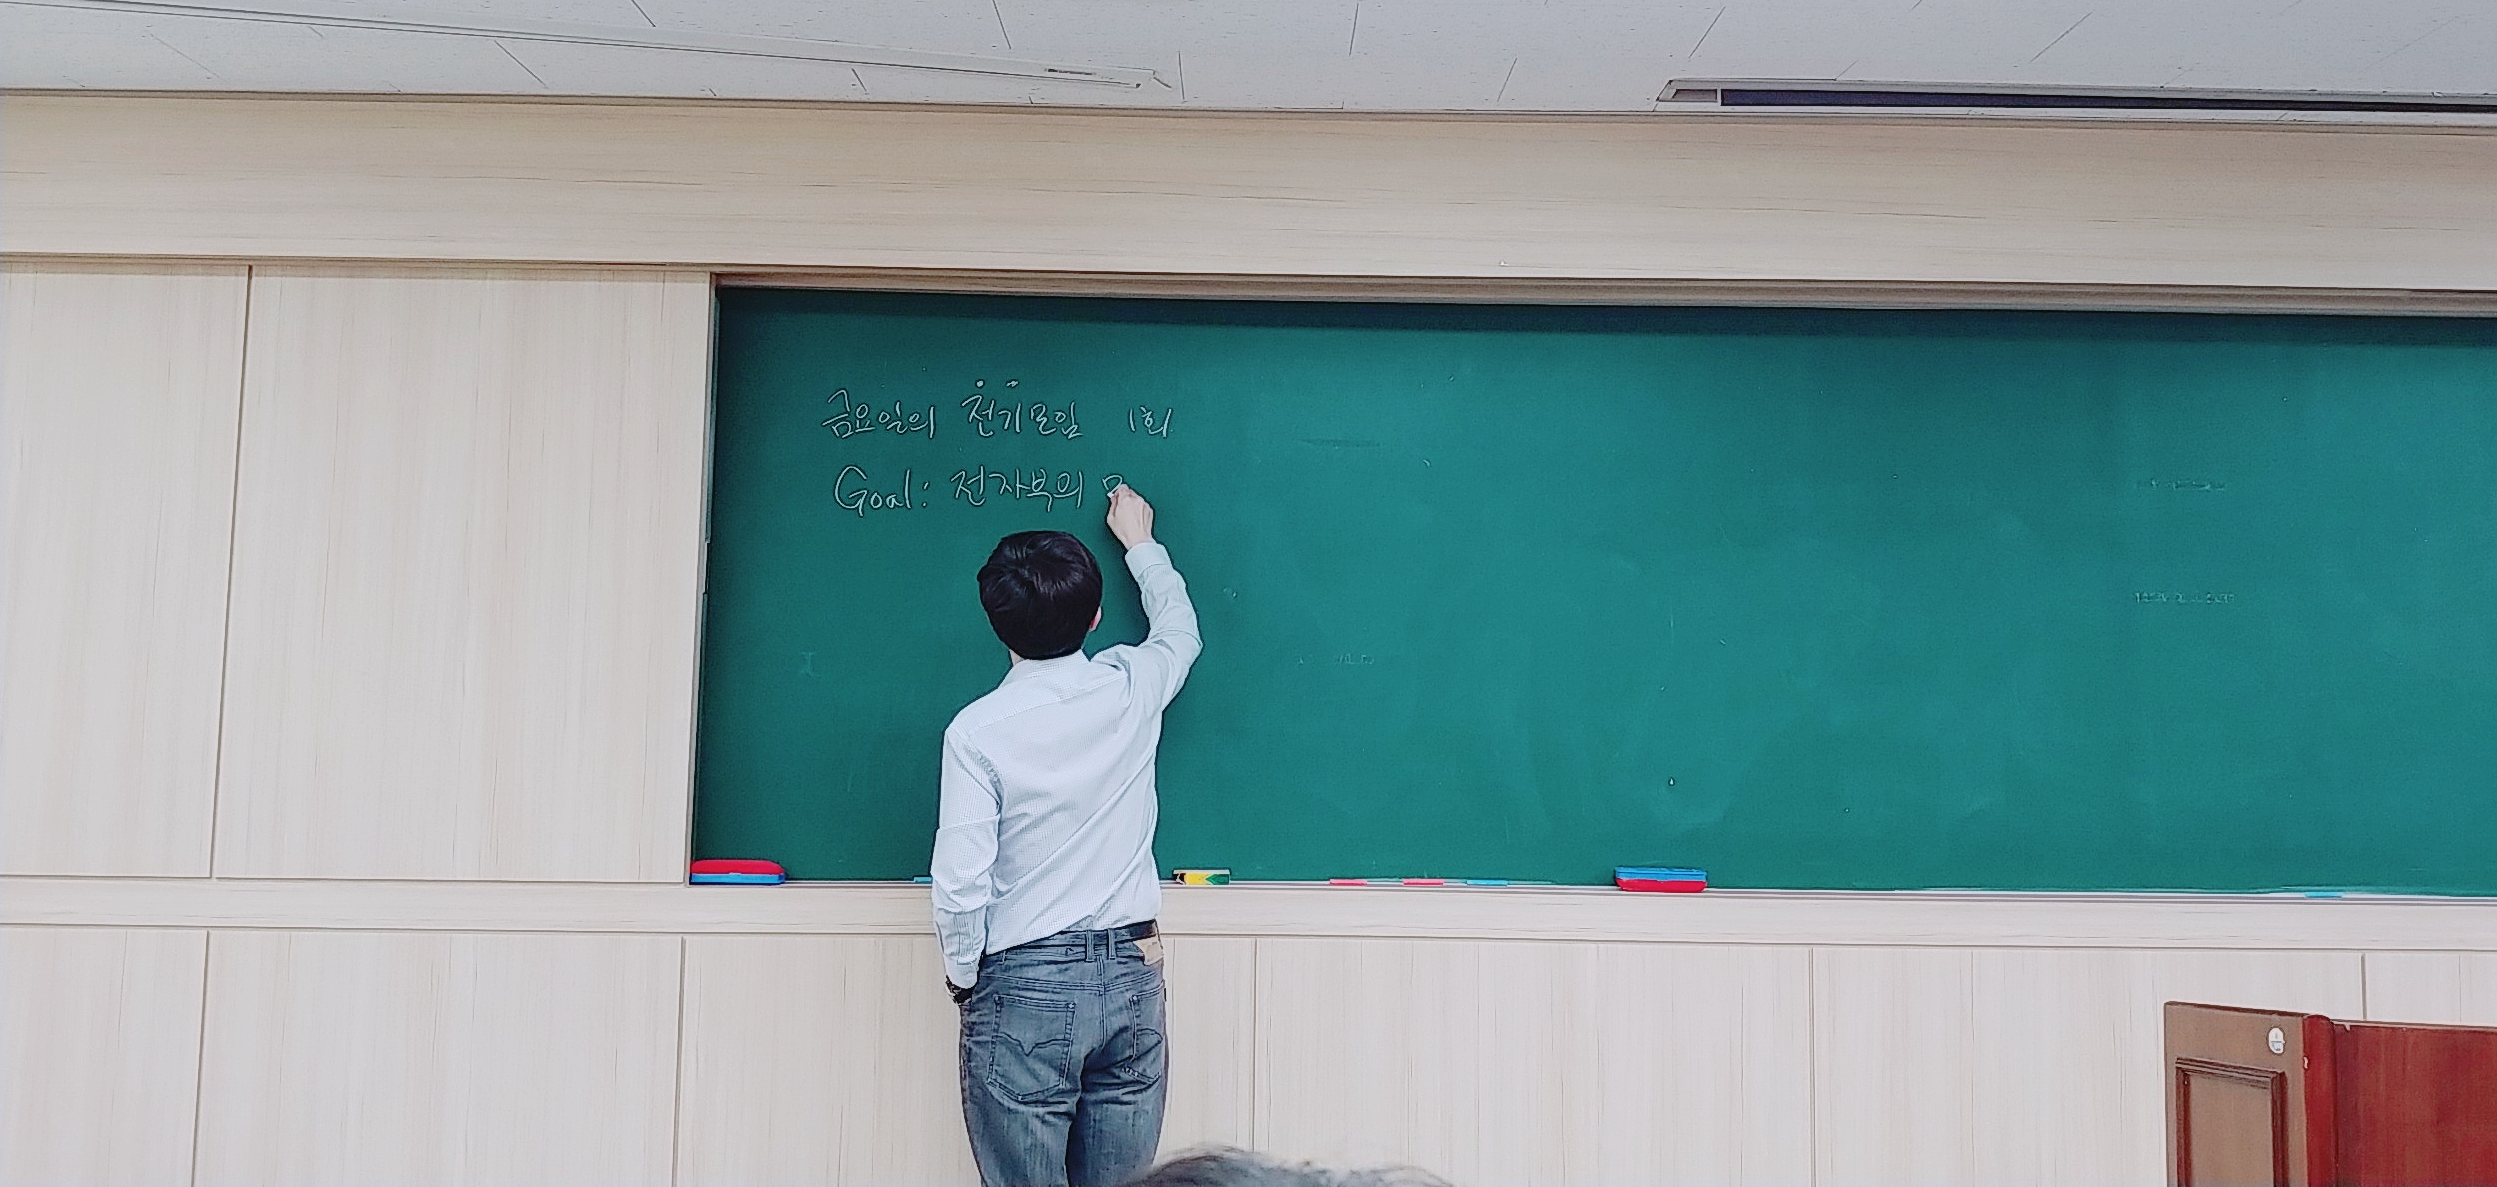 금요일의 전기모임 1회
Goal: 전자부의